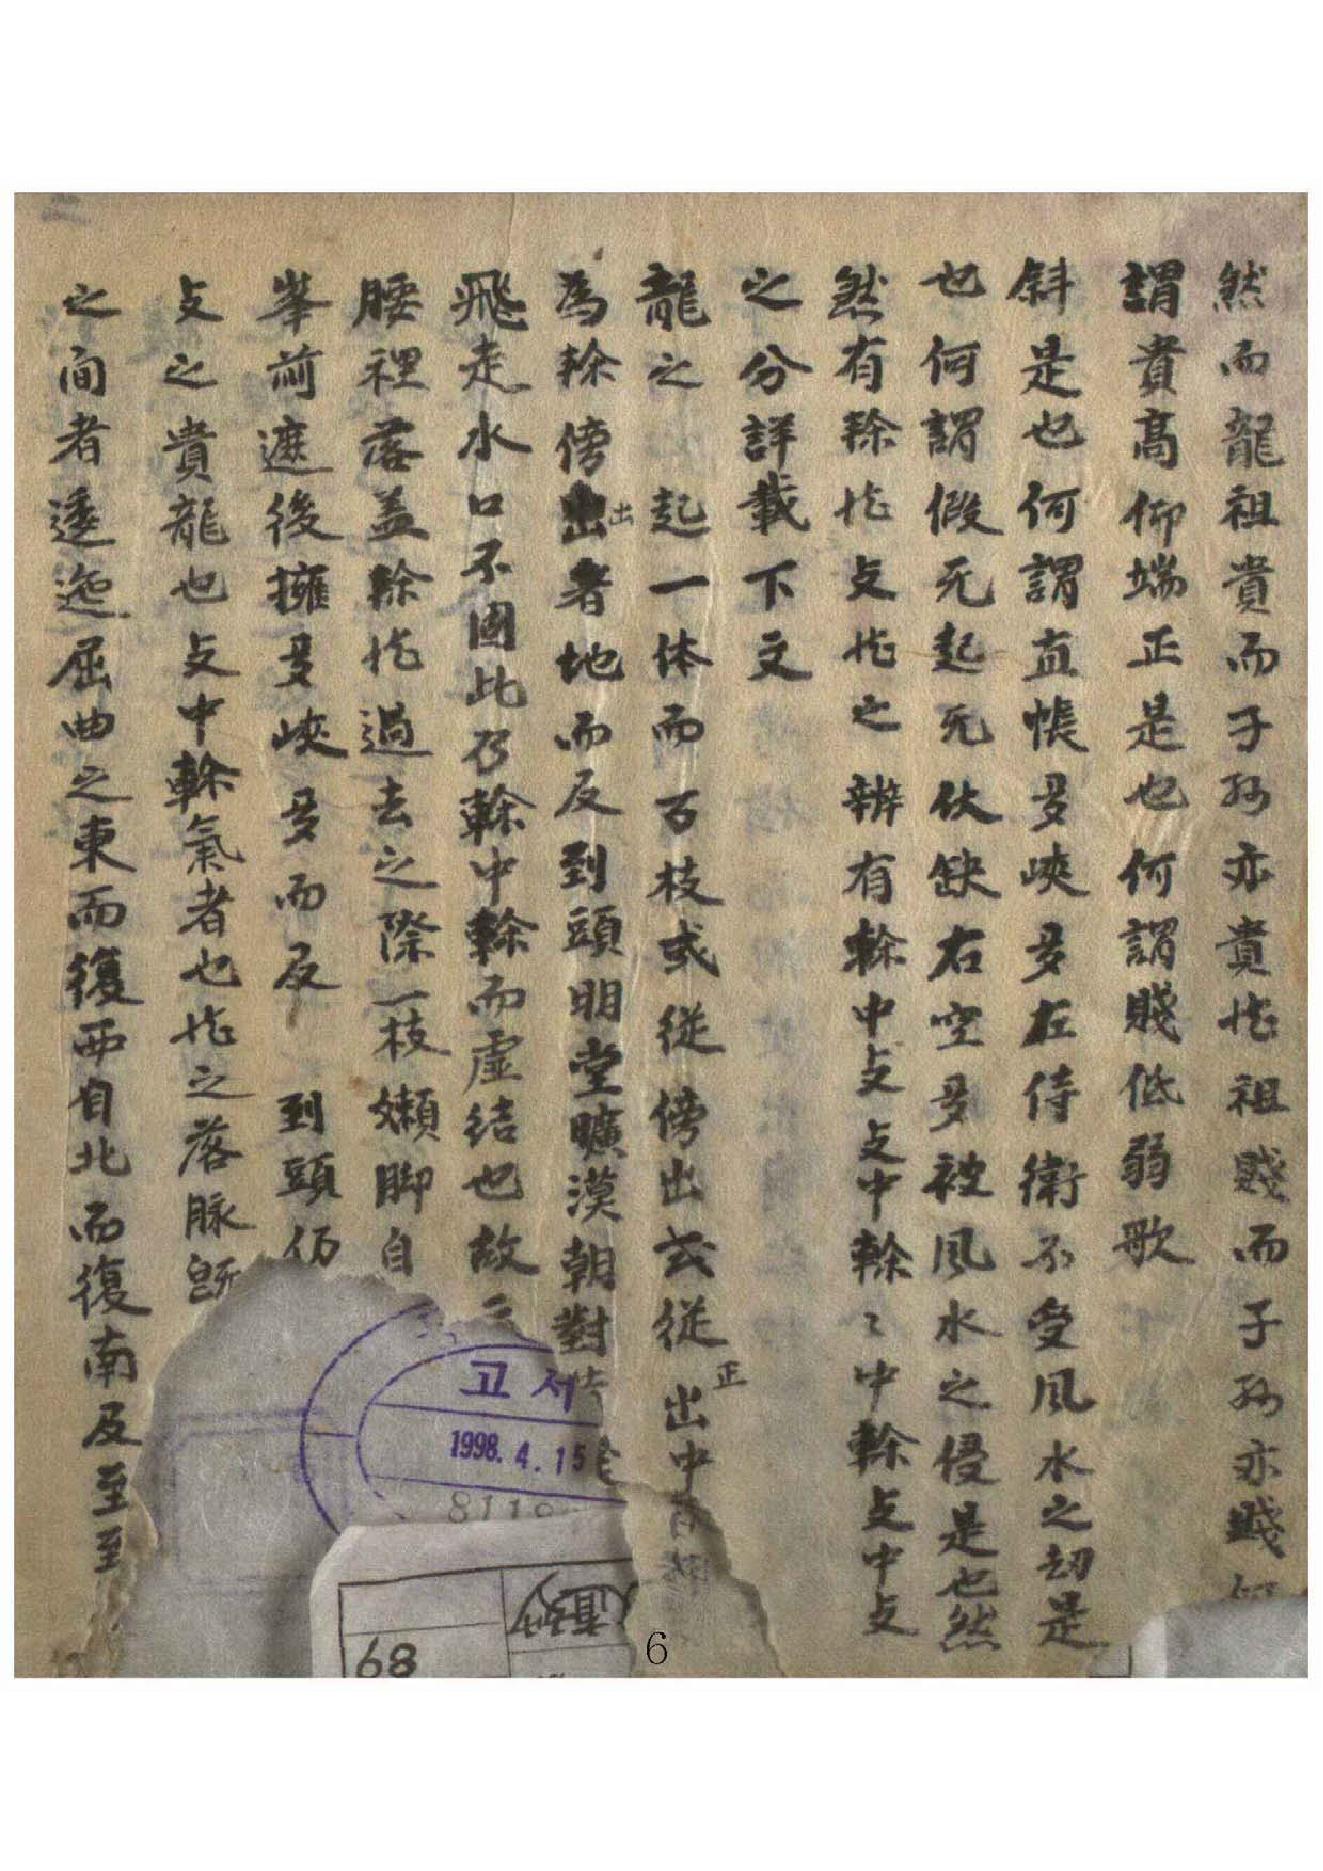 然而龍祖貴而子孫亦貴龙祖賤而子孫亦賤何
謂貴高仰端正是也何謂賤低弱歌
斜是也何謂直帳多峽多左侍衛不受風水之刼是
也何謂假无起无伏缺右空多被風水之侵是也然
然有榦龙攴龙之辨有榦中攴攴中榦〻中榦攴中攴
之分詳載下文
龍之 起一体而百枝或從傍出或從正出中
為榦傍出者地而反到頭明堂曠漠朝對
飛走水口不固此乃榦中榦而虛結也故云
腰裡落盖榦龙過去之際一枝嬾脚自
峯前遮後擁多峽多而反 到頭仍
攴之貴龍也攴中榦氣者也龙之落脉旣
之面者逶迤屈曲之東而復西自北而復南及至至
고서
1998.4.15
8119
68
6